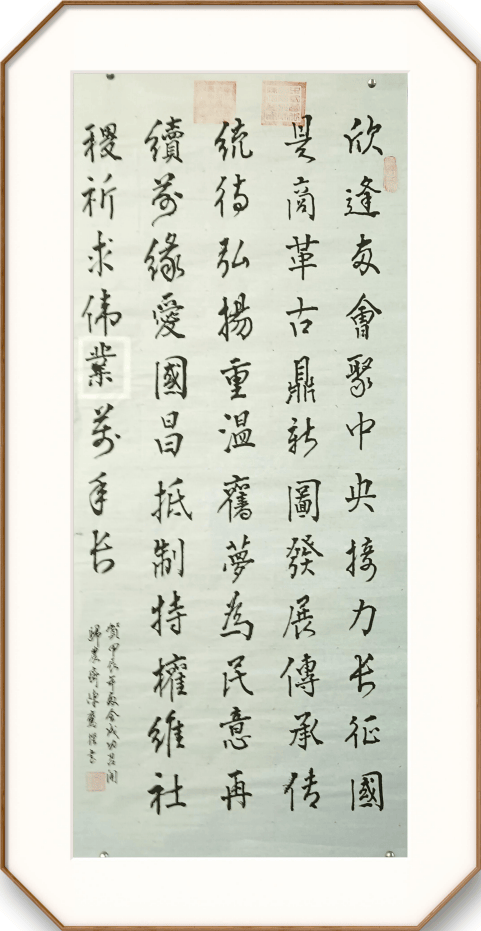 欣逢两會聚中央接力长征國
是商革古鼎新圖發展傳承传
统待弘揚重温舊夢為民意再
續前緣愛國昌抵制特權維社
稷祈求伟業萬年长
賀甲辰年两会成功召開